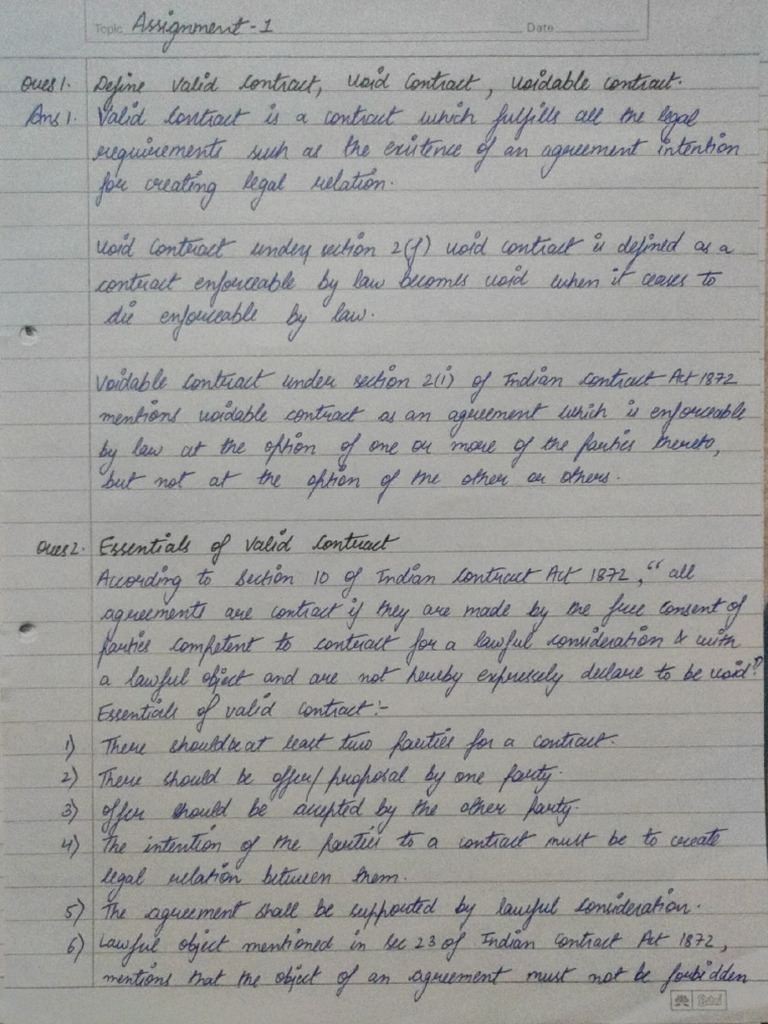 Topic Assignment-1 Date
Ques 1. Define valid contract, void contract, voidable contract.
Ans 1. Valid contract is a contract which fulfills all the legal
requirements such as the existence of an agreement intention
for creating legal relation.
void contract under section 2(f) void contract is defined as a
contract enforceable by law becomes void when it ceases to
die enforceable by law.
Voidable contract under section 2(i) of Indian contract Act 1872
mentions voidable contract as an agreement which is enforceable
by law at the option of one or more of the parties thereto,
but not at the option of the other or others.
Ques 2. Essentials of valid contract
According to section 10 of Indian contract Act 1872, "all
agreements are contract if they are made by the free consent of
parties competent to contract for a lawful consideration & with
a lawful object and are not hereby expressely declare to be void"
Essentials of valid contract:-
1) There should be at least two parties for a contract.
2) There should be offer/proposal by one party.
3) offer should be accepted by the other party.
4) The intention of the parties to a contract must be to create
legal relation between them.
5) The agreement shall be supported by lawful consideration.
6) Lawful object mentioned in sec 23 of Indian contract Act 1872,
mentions that the object of an agreement must not be forbidden